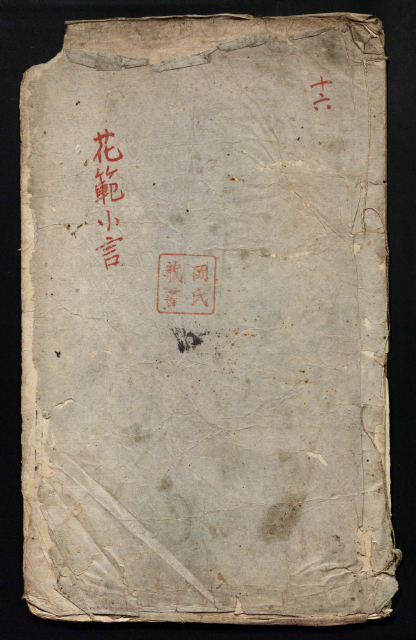 十六
花範小言
岡氏
藏書